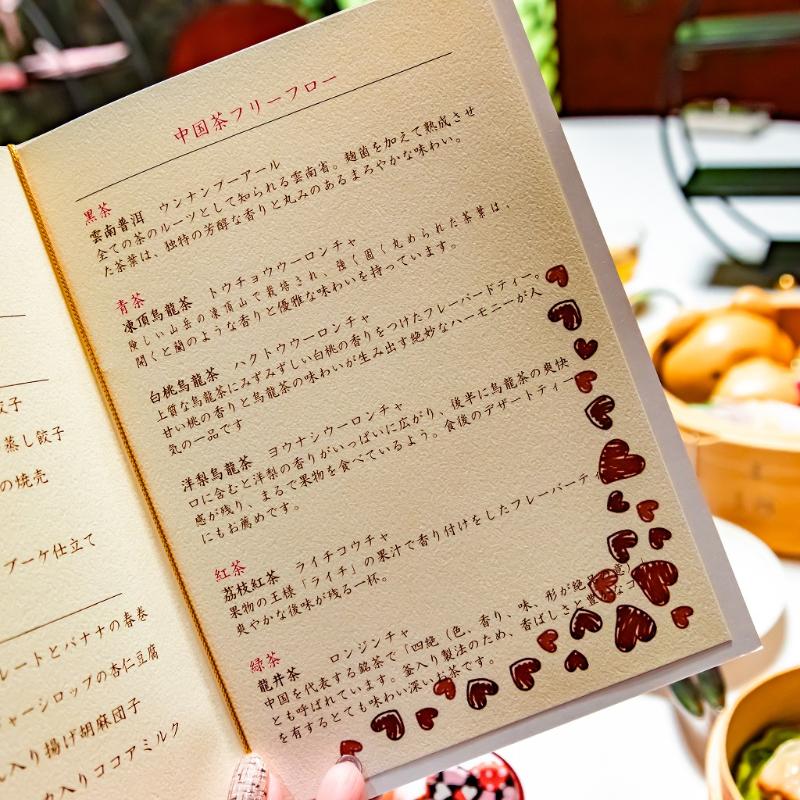 餃子
蒸し餃子
の焼売
ブーケ仕立て
レートとバナナの春巻
ャーシロップの杏仁豆腐
ん入り揚げ胡麻団子
カ入りココアミルク
中国茶フリーフロー
黒茶
雲南普洱 ウンナンプーアール
全ての茶のルーツとして知られる雲南省。麹菌を加えて熟成させ
た茶葉は、独特の芳醇な香りと丸みのあるまろやかな味わい。
青茶
凍頂烏龍茶 トウチョウウーロンチャ
険しい山岳の凍頂山で栽培され、強く固く丸められた茶葉は、
開くと蘭のような香りと優雅な味わいを持っています。
白桃烏龍茶 ハクトウウーロンチャ
上質な烏龍茶にみずみずしい白桃の香りをつけたフレーバードティー。
甘い桃の香りと烏龍茶の味わいが生み出す絶妙なハーモニーが人
気の一品です
洋梨烏龍茶 ヨウナシウーロンチャ
口に含むと洋梨の香りがいっぱいに広がり、後半に烏龍茶の爽快
感が残り、まるで果物を食べているよう。食後のデザートティー
にもお薦めです。
紅茶
荔枝紅茶 ライチコウチャ
果物の王様「ライチ」の果汁で香り付けをしたフレーバーティ
爽やかな後味が残る一杯。
緑茶
龍井茶 ロンジンチャ
中国を代表する銘茶で「四絶(色、香り、味、形が絶品の意)」
とも呼ばれています。釜入り製法のため、香ばしさと豊かなコ
を有するとても味わい深いお茶です。